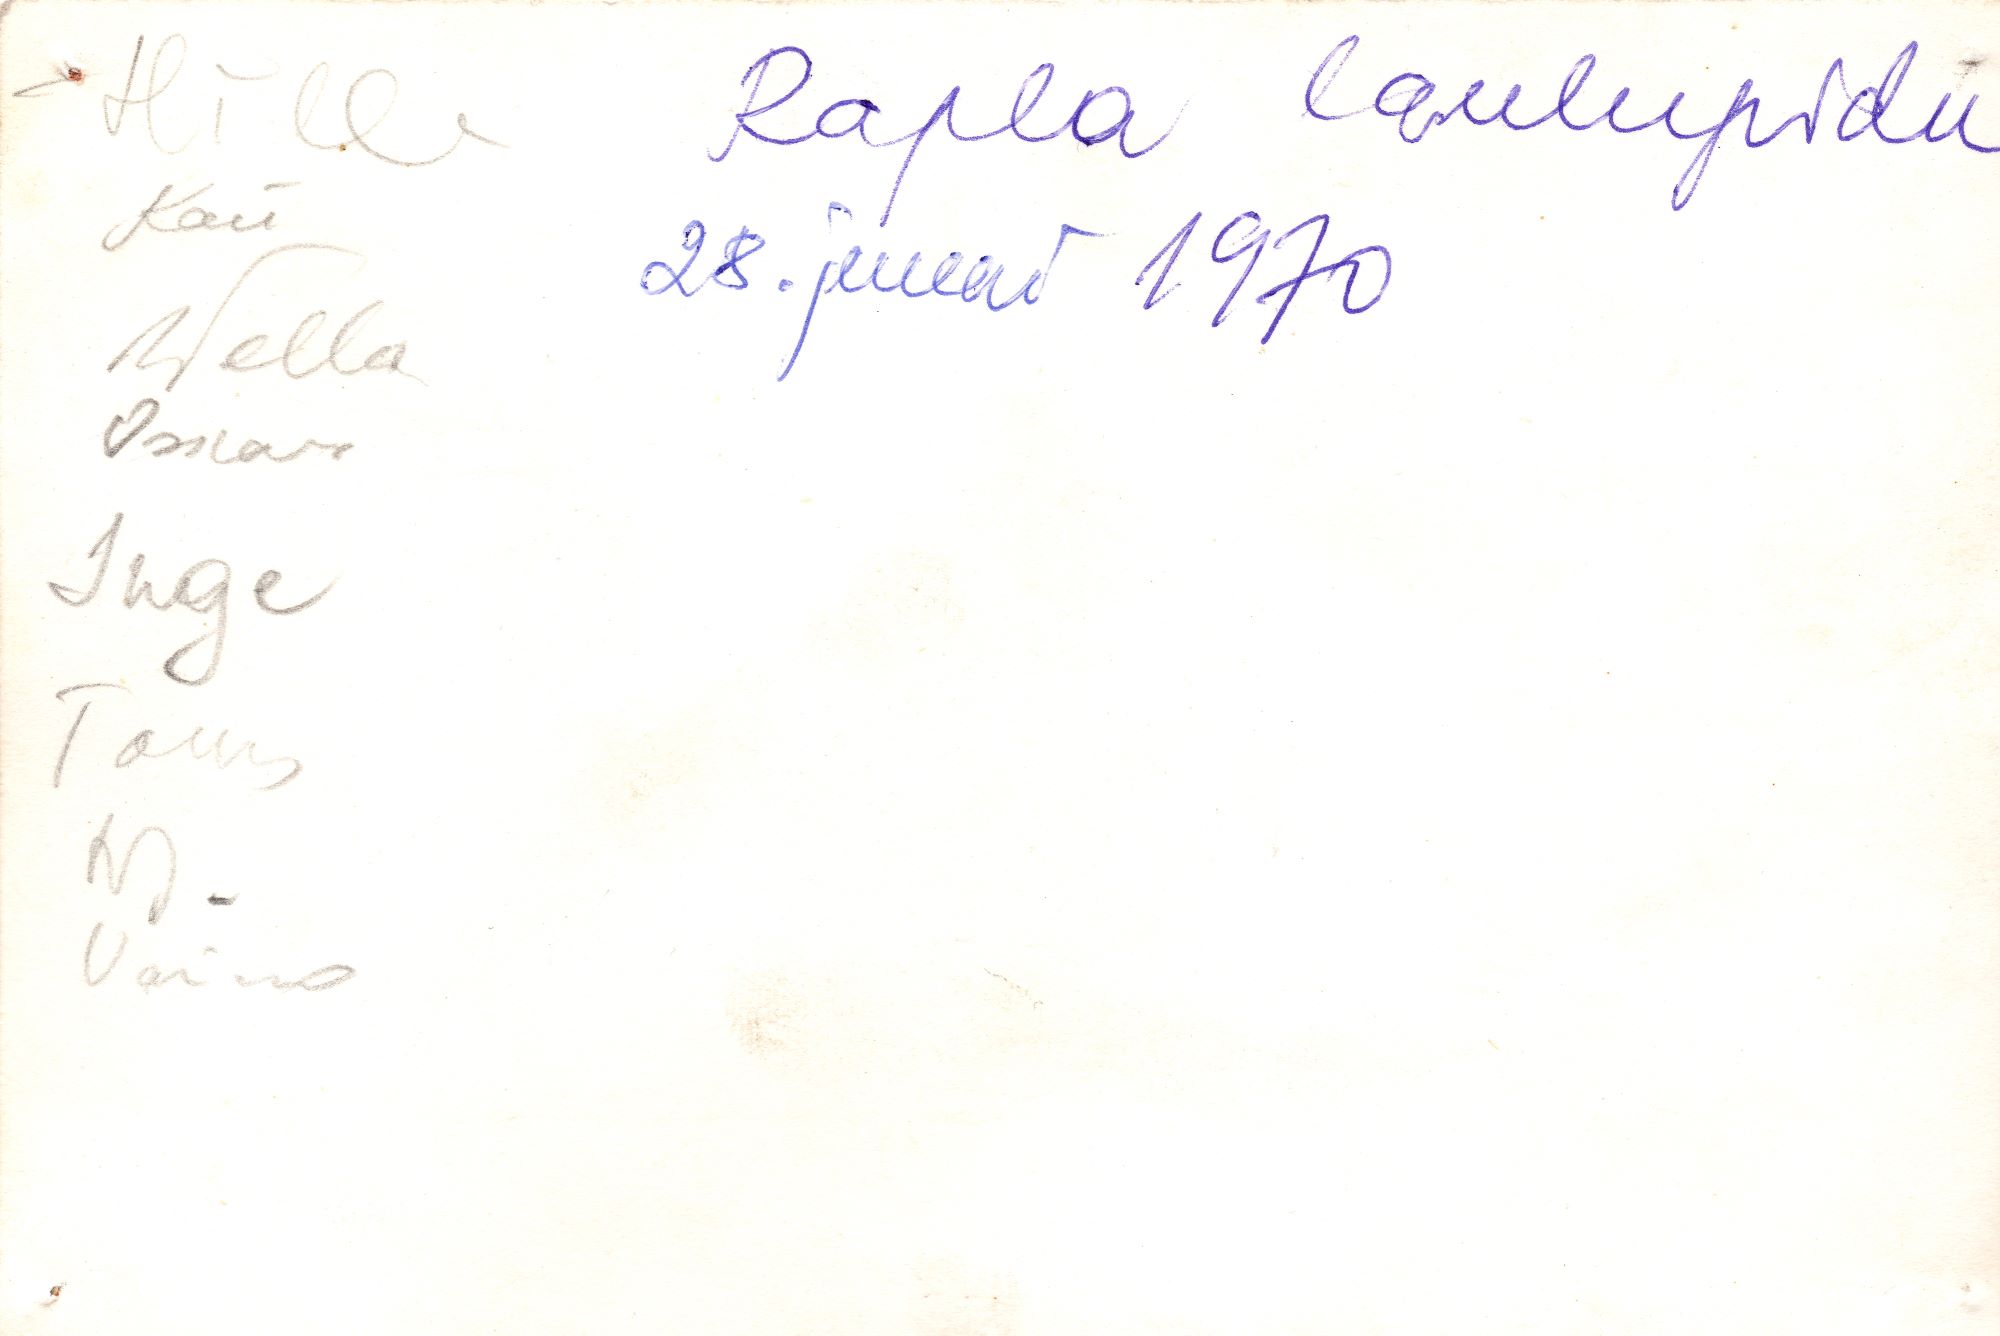 Rapla laulupidu
28. juunil 1970
Hille
Kai
Vella
Oskar
Inge
Toms
Vaino